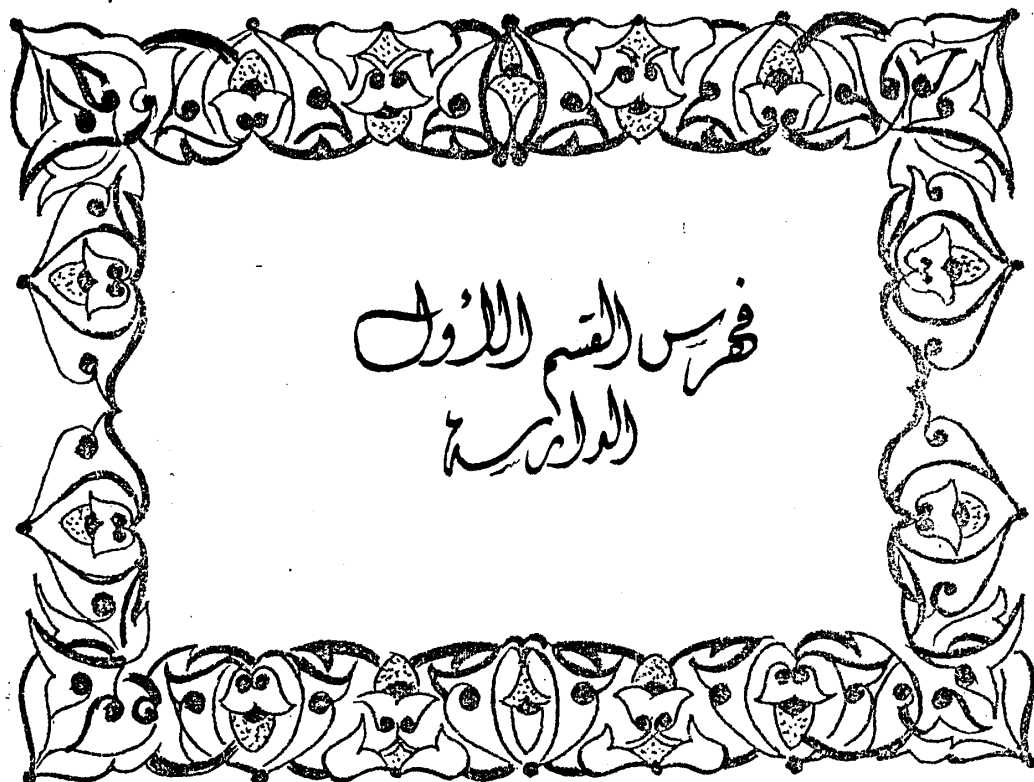 فهرس القسم الأول
الدراسة